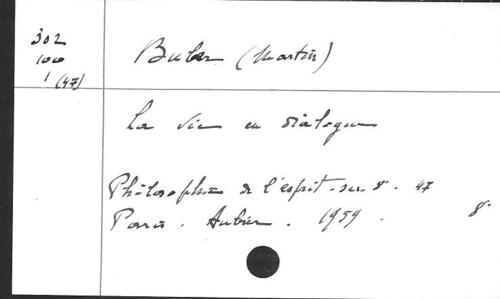 302
100
1 (47)
Buber (Martin)
La vie en dialogue
Philosophie de l'esprit - in 8° - 47
Paris. Aubier. 1959. 8°